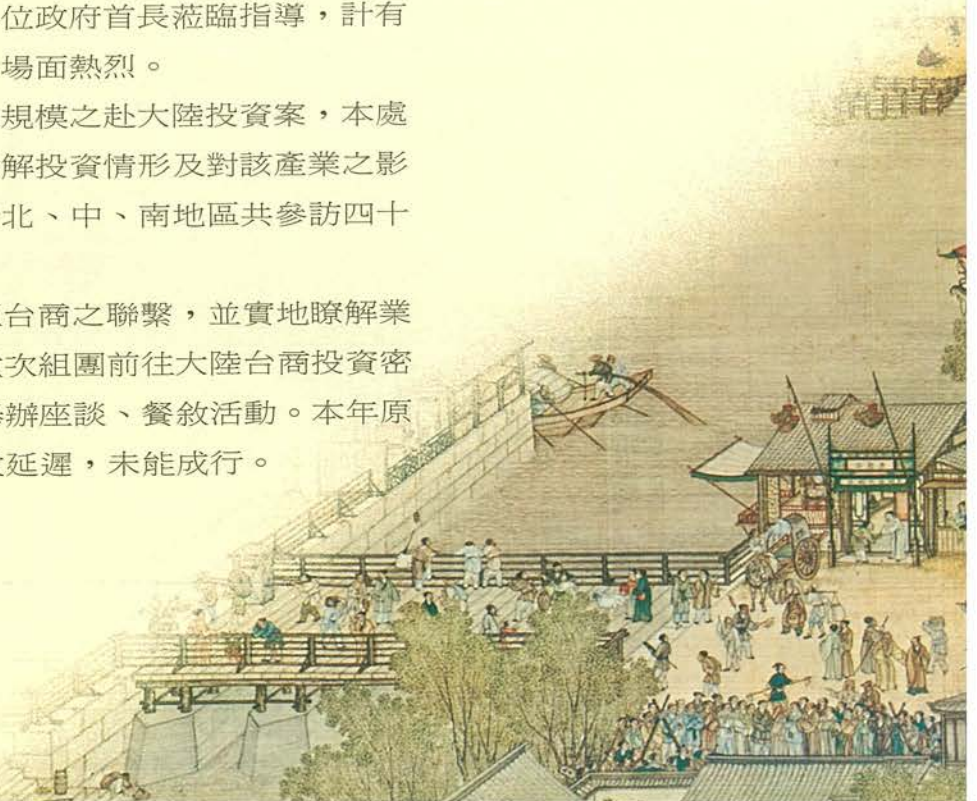 位政府首長蒞臨指導，計有
場面熱烈。
規模之赴大陸投資案，本處
解投資情形及對該產業之影
北、中、南地區共參訪四十
台商之聯繫，並實地瞭解業
次組團前往大陸台商投資密
辦座談、餐敘活動。本年原
延遲，未能成行。